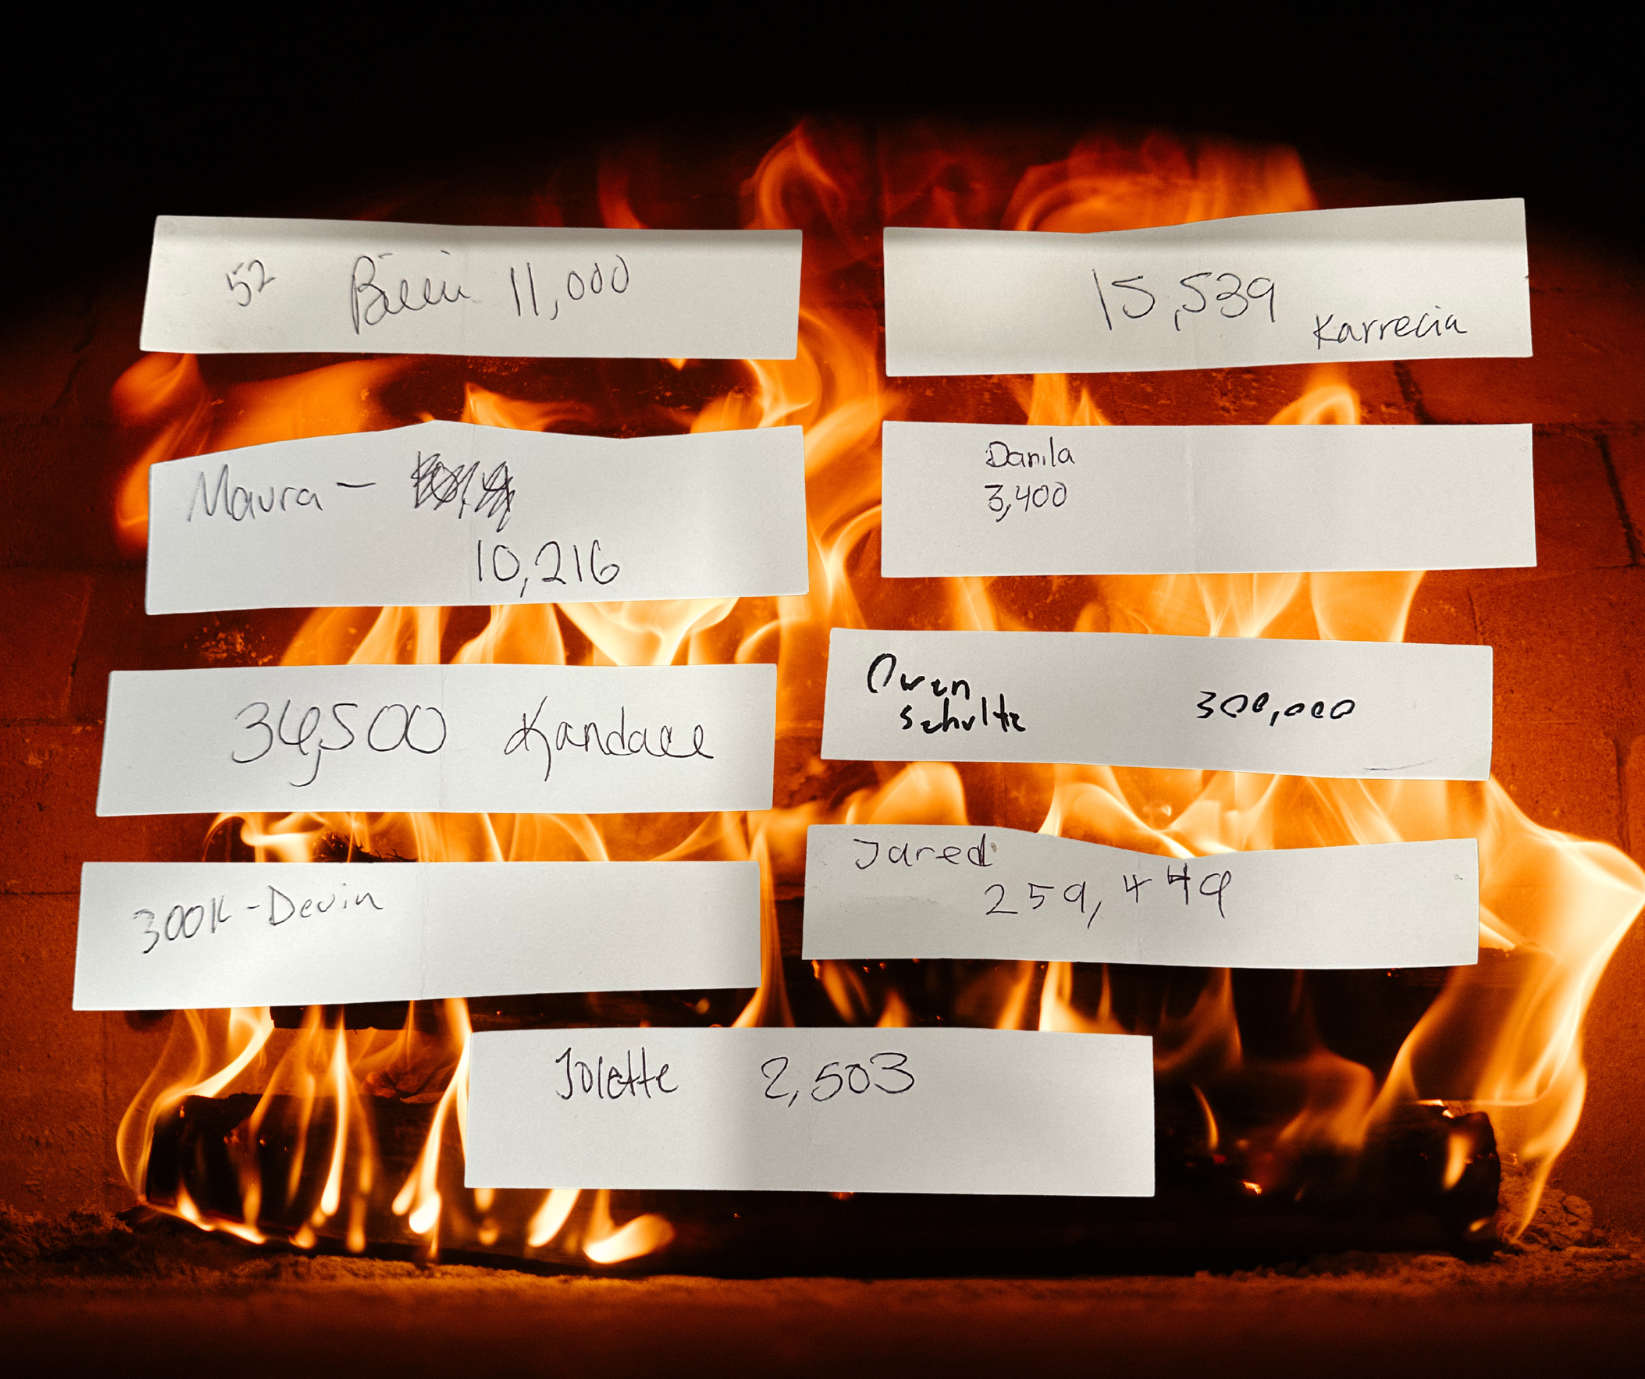 52 11,000
15,539
Karrecia
Maura —
10,216
Danila
3,400
Kandace
Owen
Schultz 300,000
300K - Devin
Jared
259,449
Jolette 2,503